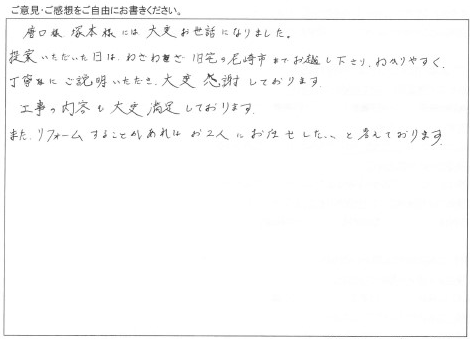 ご意見・ご感想をご自由にお書きください。
唐口様 塚本様には大変お世話になりました。
提案いただいた日は、わざわざ旧宅の尼崎市までお越し下さり、わかりやすく、
丁寧にご説明いただき、大変感謝しております。
工事の内容も大変満足しております。
また、リフォームすることがあればお2人にお任せしたいと考えております。